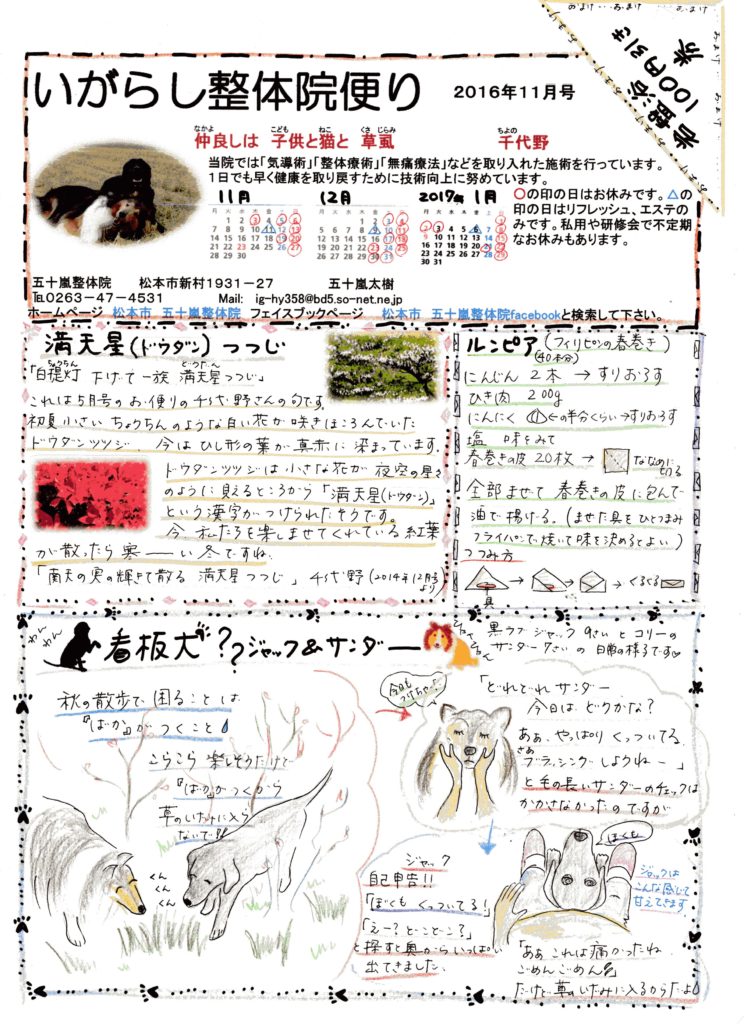 おまけ・・・おまけ・・・おまけ
岩盤浴
100円引き
券
いがらし整体院便り 2016年11月号
仲良しは 子供と猫と 草虱 千代野
当院では「気導術」「整体療術」「無痛療法」などを取り入れた施術を行っています。
1日でも早く健康を取り戻すために技術向上に努めています。
11月 12月 2017年 1月
○の印の日はお休みです。△の
印の日はリフレッシュ、エステの
みです。私用や研修会で不定期
なお休みもあります。
五十嵐整体院 松本市新村1931-27 五十嵐太樹
℡0263-47-4531 Mail: ig-hy358@bd5.so-net.ne.jp
ホームページ 松本市 五十嵐整体院 フェイスブックページ 松本市 五十嵐整体院facebookと検索して下さい。
満天星(ドウダン)つつじ
「白提灯 下げて一族 満天星つつじ」
これは5月号のお便りの千代野さんの句です。
初夏小さいちょうちんのような白い花が咲きほころんでいた
ドウダンツツジ、今はひし形の葉が真赤に染まっています。
ドウダンツツジは小さな花が夜空の星々
のように見えるところから「満天星(ドウダン)」
という漢字がつけられたそうです。
今、私たちを楽しませてくれている紅葉
が散ったら寒ーーい冬ですね。
「南天の実の輝きて散る 満天星つつじ」千代野(2014年12月号より)
ルンピア(フィリピンの春巻き)
(40本分)
にんじん 2本 → すりおろす
ひき肉 200g
にんにく ←の半分くらい→すりおろす
塩 味をみて
春巻きの皮 20枚 → ななめに切る
全部まぜて 春巻きの皮に包んで
油で揚げる。(まぜた具をひとつまみ
フライパンで焼いて味を決めるとよい)
つつみ方
具
くるくる
わんわん
看板犬??ジャック&サンダー
黒ラブ ジャック 9さい と コリーの
サンダー 7さい の 日常の様子です♡
秋の散歩で困ることは
『ばか』がつくこと
こらこら 楽しそうだけど
『ばか』がつくから
草のいたみに入らないで!!
くんくんくん
今日もつけちゃった
「どれどれサンダー
今日は どうかな?
ああ、やっぱり くっついてる。
さあ
ブラッシングしようねー」
と毛の長いサンダーのチェックは
かかさなかったのですが
ジャック
自己申告!!
「ぼくも くっついてる!」
「えー?どこどこ?」
と探すと奥からいっぱい
出てきました。
ぼくも
ジャックは
こんな感じで
甘えてきます
「ああ これは痛かったね
ごめんごめん」
だけど草のいたみに入るからだよ